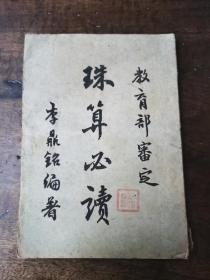 教育部審定
珠算必讀
李鼎銘編著